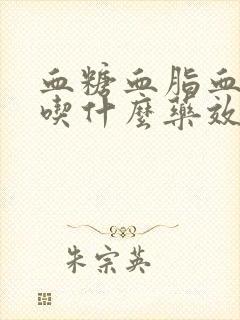 血糖血脂血
喫什麼藥效
朱宗英